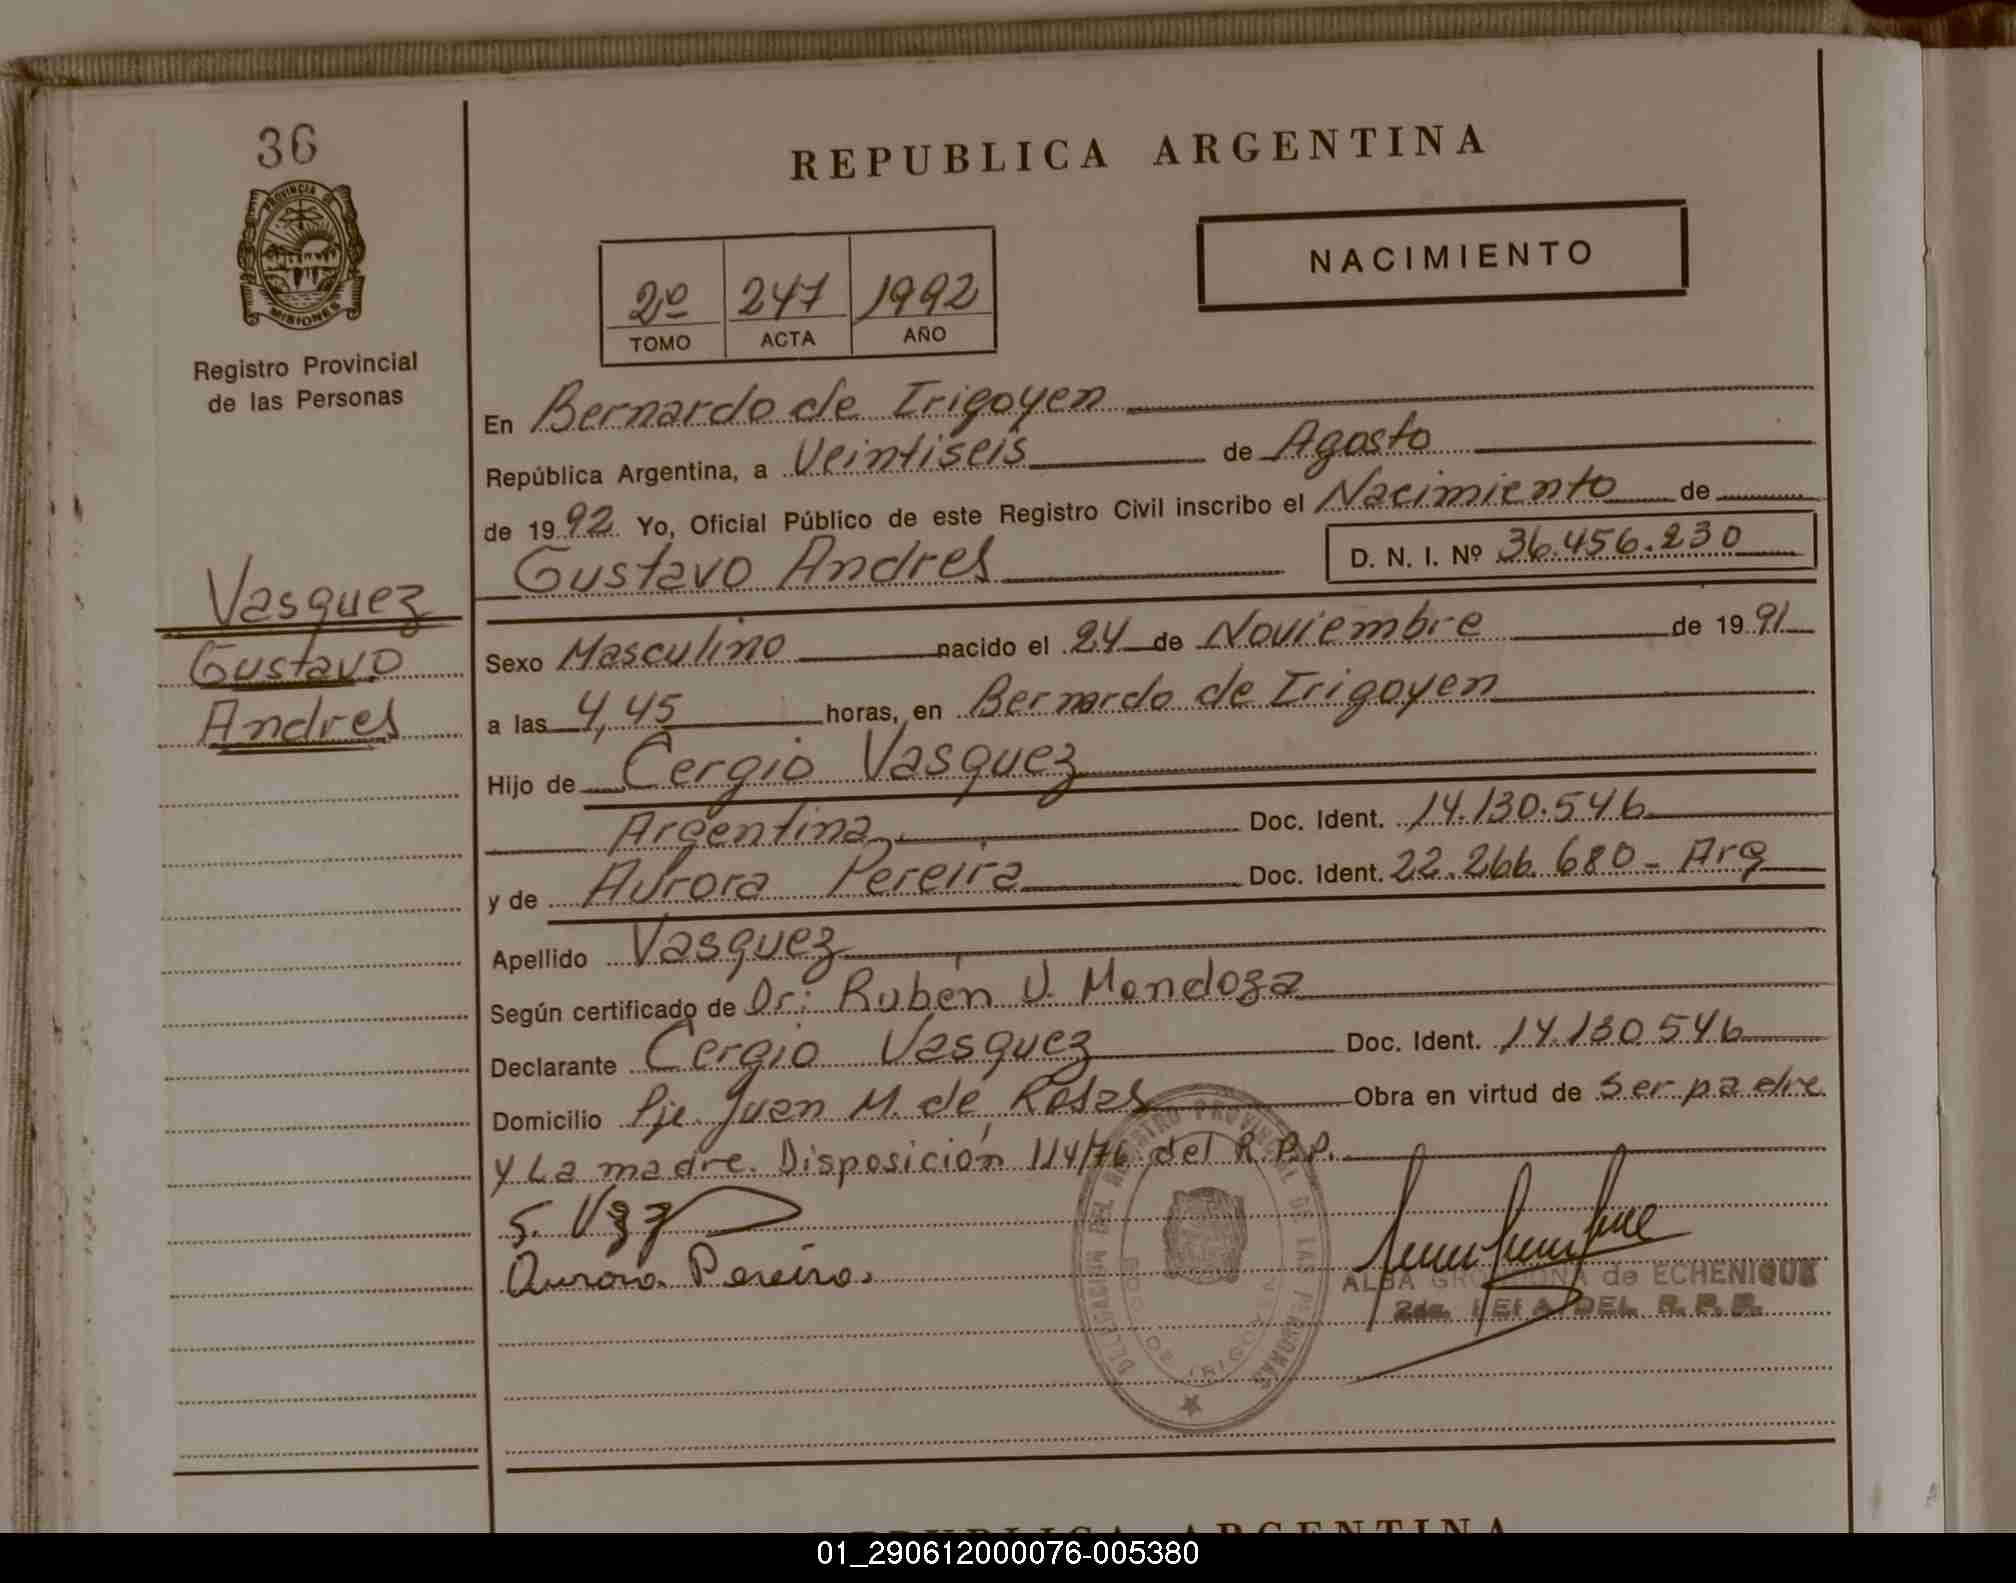 36
PROVINCIA DE
MISIONES
Registro Provincial
de las Personas
Vasquez
Gustavo
Andres
REPUBLICA ARGENTINA
NACIMIENTO
2º 247 1992
TOMO ACTA AÑO
En Bernardo de Irigoyen
República Argentina, a Veintiseis de Agosto
de 1992 Yo, Oficial Público de este Registro Civil inscribo el Nacimiento de
Gustavo Andres D. N. I. Nº 36.456.230
Sexo Masculino nacido el 24 de Noviembre de 1991
a las 4,45 horas, en Bernardo de Irigoyen
Hijo de Cergio Vasquez
Argentina Doc. Ident. 14.130.546
y de Aurora Pereira Doc. Ident. 22.266.680 - Arg
Apellido Vasquez
Según certificado de Dr: Rubén V. Mendoza
Declarante Cergio Vasquez Doc. Ident. 14.130.546
Domicilio Pje. Juan M. de Rosas Obra en virtud de Ser padre
y La madre. Disposición 114/76 del R.P.P.
Aurora Pereira
DELEGACION DEL REGISTRO PROVINCIAL DE LAS PERSONAS
ALBA de ECHENIQUE
2da. JEFA DEL R.P.P.
REPUBLICA ARGENTINA
01_290612000076-005380